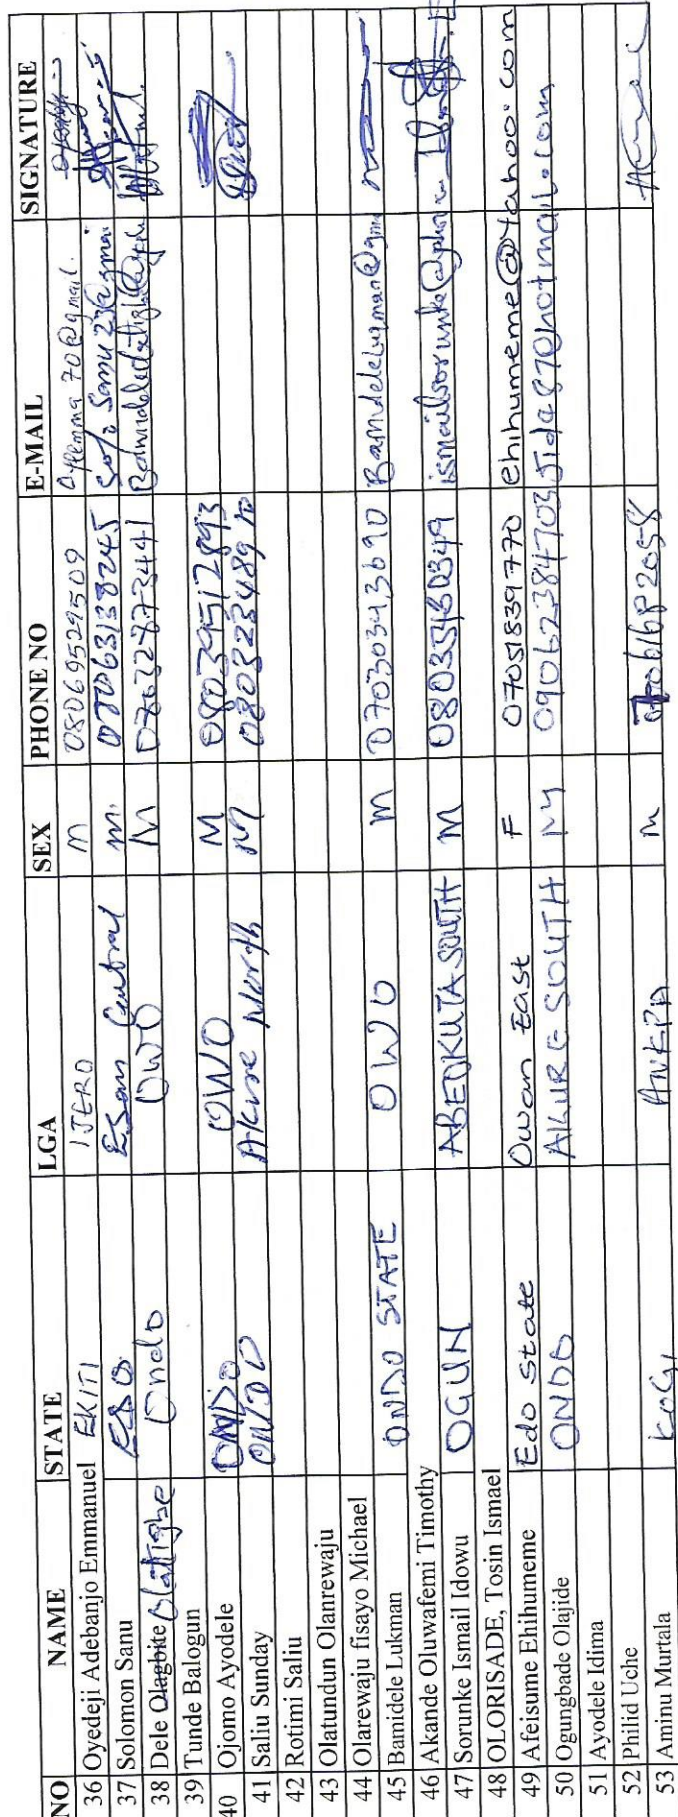 NO NAME STATE LGA SEX PHONE NO E-MAIL SIGNATURE
36 Oyedeji Adebanjo Emmanuel EKITI IJERO M 08069529509
37 Solomon Sanu EDO Esan Central M. 07063138245
38 Dele Olagbite Olatigbe Ondo OWO M
39 Tunde Balogun
40 Ojomo Ayodele ONDO OWO M 08034512893
41 Saliu Sunday ONDO Akure North M
42 Rotimi Saliu
43 Olatundun Olanrewaju
44 Olarewaju fisayo Michael
45 Bamidele Lukman ONDO STATE OWO M 07030343690
46 Akande Oluwafemi Timothy
47 Sorunke Ismail Idowu OGUN ABEOKUTA SOUTH M
48 OLORISADE, Tosin Ismael
49 Afeisume Ehihumeme Edo State Owan East F 07051839770 ehihumeme@Yahoo.com
50 Ogungbade Olajide ONDO AKURE SOUTH M 09062384703
51 Ayodele Idima
52 Philid Uche
53 Aminu Murtala KOGI ANKPA M